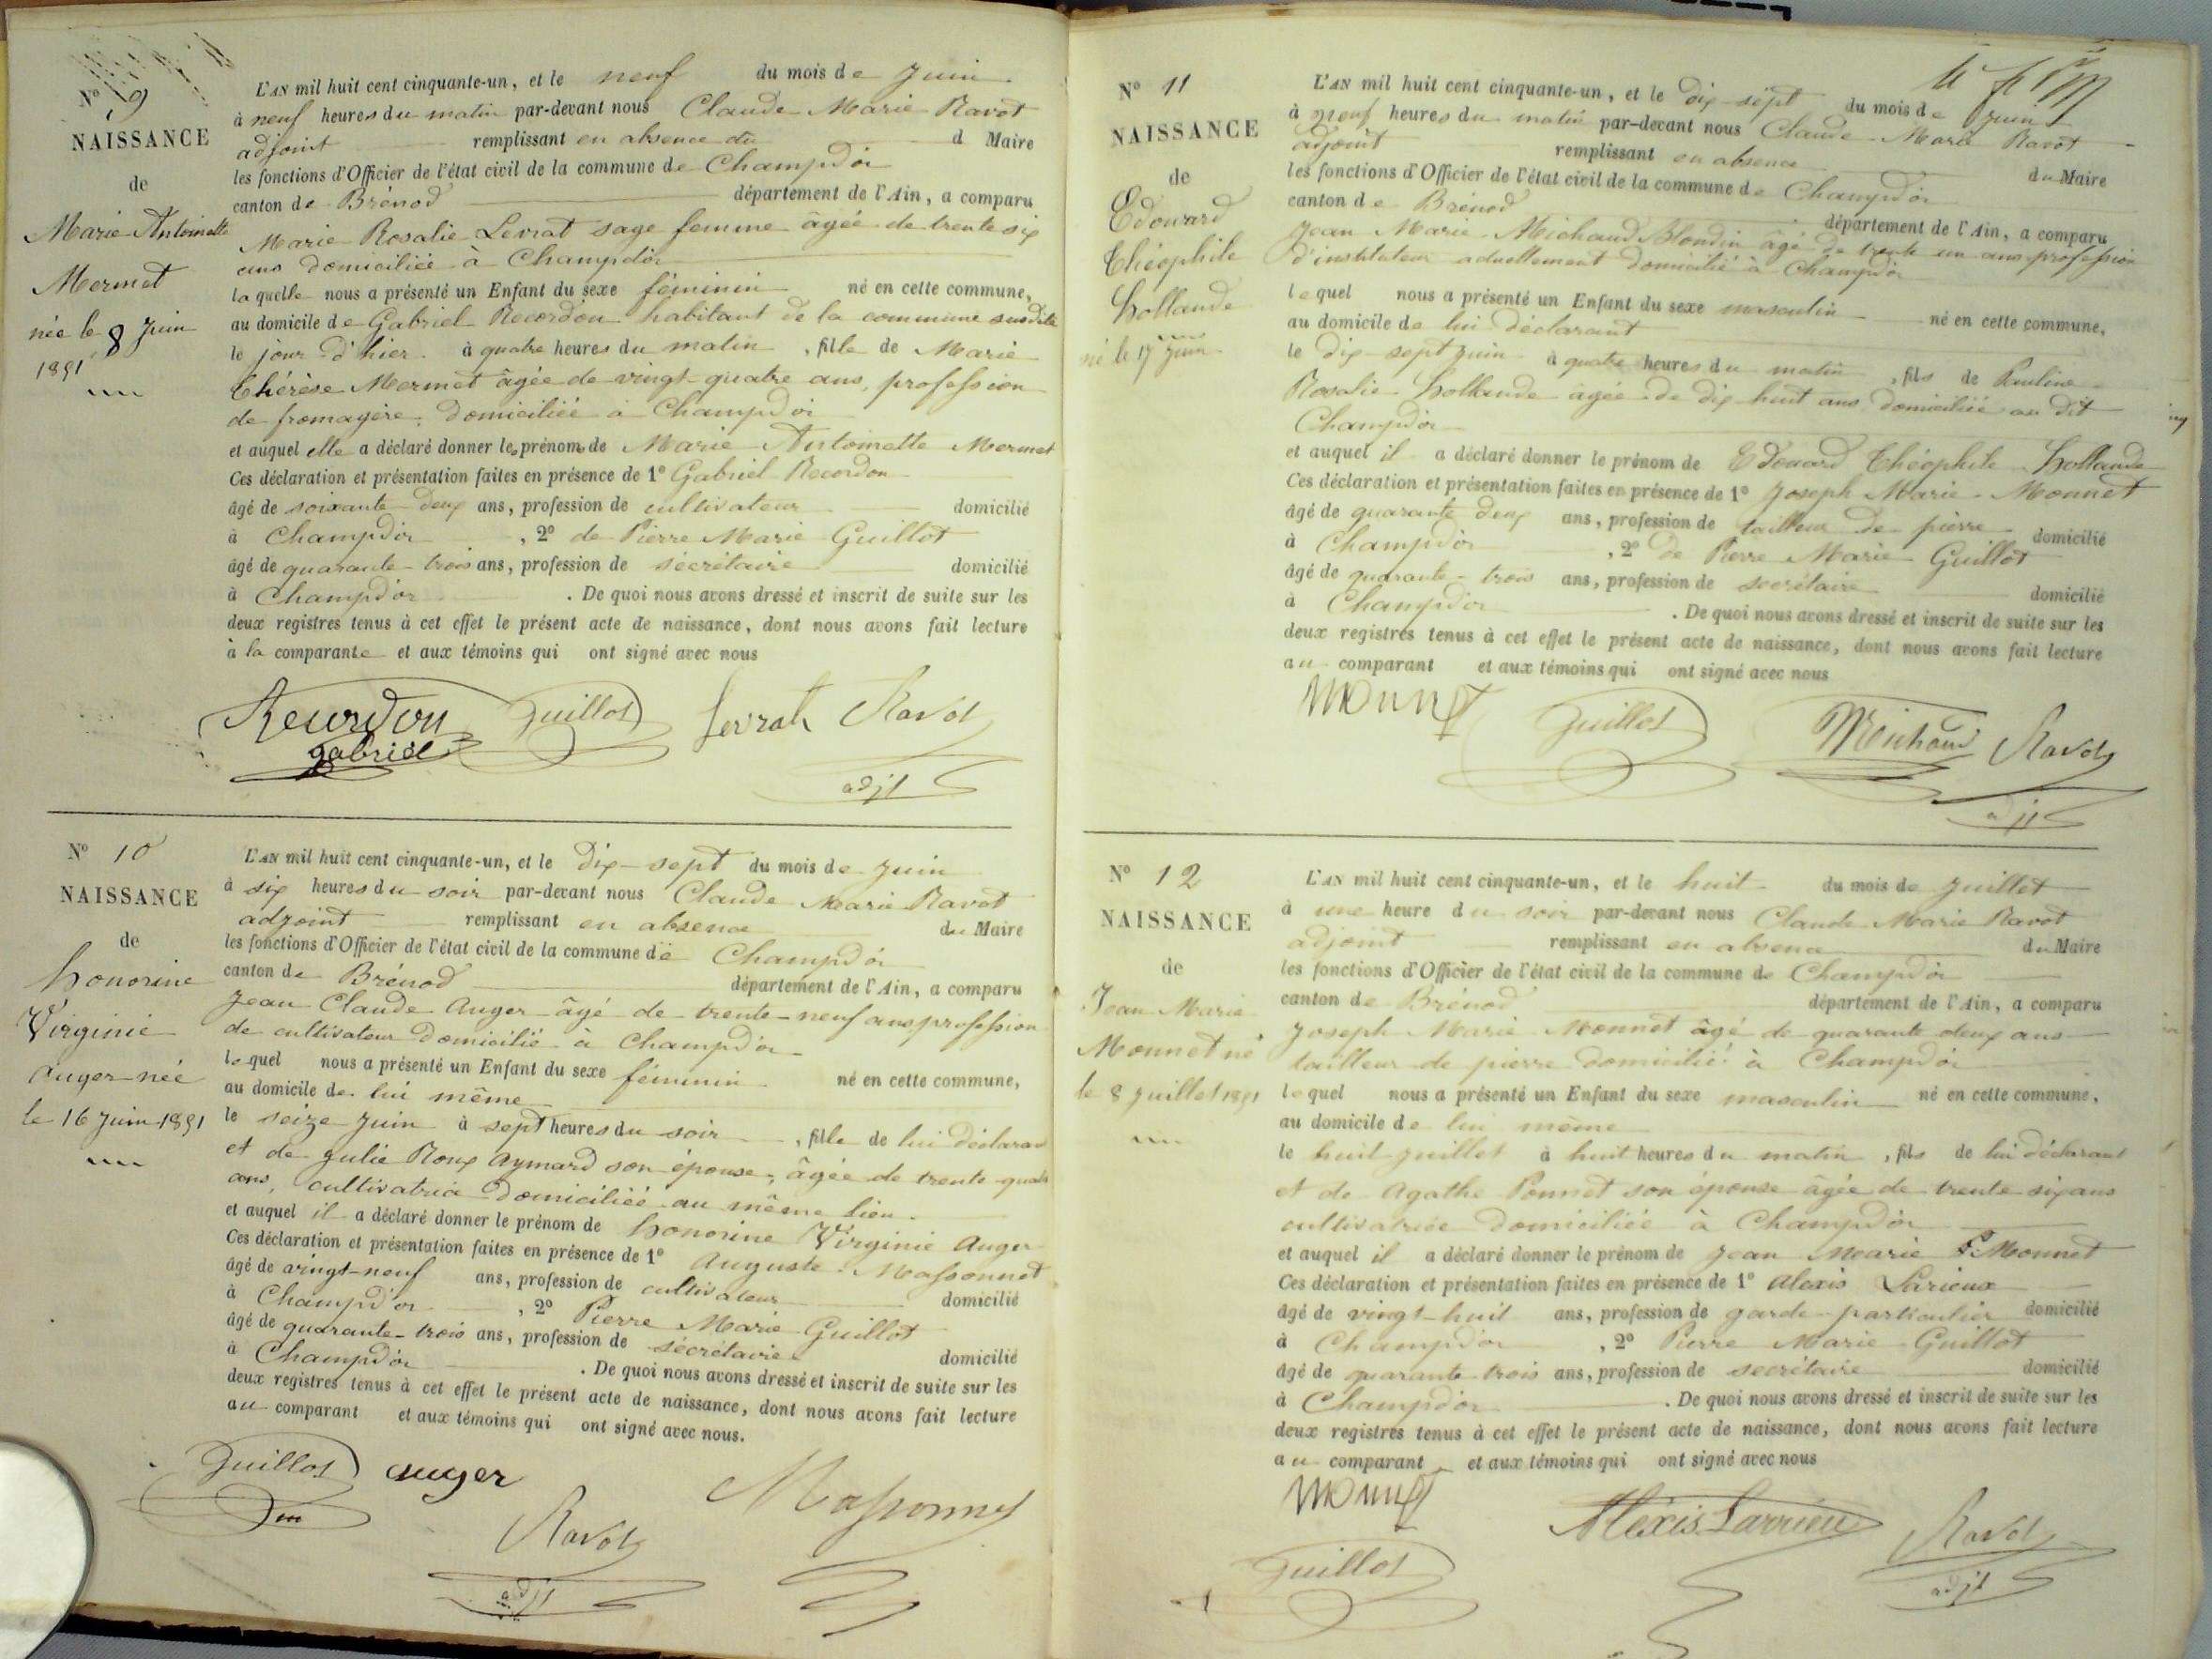 N° 9
NAISSANCE
de
Marie Antoinette
Mermet
née le 8 Juin
1851
L'AN mil huit cent cinquante-un, et le neuf du mois de Juin
à neuf heures du matin par-devant nous Claude Marie Ravot
adjoint remplissant en absence du d Maire
les fonctions d'Officier de l'état civil de la commune de Champdor
canton de Brénod département de l'Ain, a comparu
Marie Rosalie Levrat sage femme âgée de trente six
ans domiciliée à Champdor
laquelle nous a présenté un Enfant du sexe féminin né en cette commune,
au domicile de Gabriel Recordon habitant de la commune susdite
le jour d'hier à quatre heures du matin, fille de Marie
Thérèse Mermet âgée de vingt-quatre ans, profession
de fromagère, domiciliée à Champdor
et auquel elle a déclaré donner les prénoms de Marie Antoinette Mermet
Ces déclaration et présentation faites en présence de 1° Gabriel Recordon
âgé de soixante deux ans, profession de cultivateur domicilié
à Champdor, 2° de Pierre Marie Guillot
âgé de quarante-trois ans, profession de sécrétaire domicilié
à Champdor. De quoi nous avons dressé et inscrit de suite sur les
deux registres tenus à cet effet le présent acte de naissance, dont nous avons fait lecture
à la comparante et aux témoins qui ont signé avec nous
Recordon Guillot Levrat Ravot
gabriel
adjt
N° 10
NAISSANCE
de
honorine
Virginie
Auger née
le 16 Juin 1851
L'AN mil huit cent cinquante-un, et le dix-sept du mois de Juin
à six heures du soir par-devant nous Claude Marie Ravot
adjoint remplissant en absence du Maire
les fonctions d'Officier de l'état civil de la commune de Champdor
canton de Brénod département de l'Ain, a comparu
Jean Claude Auger âgé de trente-neuf ans profession
de cultivateur domicilié à Champdor
lequel nous a présenté un Enfant du sexe féminin né en cette commune,
au domicile de lui même
le seize Juin à sept heures du soir, fille de lui déclarant
et de Julie Roux Aymard son épouse, âgée de trente-quatre
ans, cultivatrice domiciliée au même lieu.
et auquel il a déclaré donner le prénom de honorine Virginie Auger
Ces déclaration et présentation faites en présence de 1° Auguste Massonnet
âgé de vingt-neuf ans, profession de cultivateur domicilié
à Champdor, 2° Pierre Marie Guillot
âgé de quarante-trois ans, profession de sécrétaire domicilié
à Champdor. De quoi nous avons dressé et inscrit de suite sur les
deux registres tenus à cet effet le présent acte de naissance, dont nous avons fait lecture
au comparant et aux témoins qui ont signé avec nous.
Guillot auger
Ravot Massonnet
adjt
N° 11
NAISSANCE
de
Edouard
Théophile
hollande
né le 17 Juin
L'AN mil huit cent cinquante-un, et le dix-sept du mois de Juin
à neuf heures du matin par-devant nous Claude Marie Ravot
adjoint remplissant en absence du Maire
les fonctions d'Officier de l'état civil de la commune de Champdor
canton de Brénod département de l'Ain, a comparu
Jean Marie Michaud Blondin âgé de trente un ans profession
d'instituteur actuellement domicilié à Champdor
lequel nous a présenté un Enfant du sexe masculin né en cette commune,
au domicile de lui déclarant
le dix-sept juin à quatre heures du matin, fils de Pauline
Rosalie hollande âgée de dix huit ans domiciliée au dit
Champdor
et auquel il a déclaré donner le prénom de Edouard Théophile hollande
Ces déclaration et présentation faites en présence de 1° Joseph Marie Monnet
âgé de quarante deux ans, profession de tailleur de pierre domicilié
à Champdor, 2° de Pierre Marie Guillot
âgé de quarante-trois ans, profession de secrétaire domicilié
à Champdor. De quoi nous avons dressé et inscrit de suite sur les
deux registres tenus à cet effet le présent acte de naissance, dont nous avons fait lecture
au comparant et aux témoins qui ont signé avec nous
Monnet Guillot Michaud Ravot
adjt
N° 12
NAISSANCE
de
Jean Marie
Monnet né
le 8 Juillet 1851
L'AN mil huit cent cinquante-un, et le huit du mois de Juillet
à une heure du soir par-devant nous Claude Marie Ravot
adjoint remplissant en absence du Maire
les fonctions d'Officier de l'état civil de la commune de Champdor
canton de Brénod département de l'Ain, a comparu
Joseph Marie Monnet âgé de quarante deux ans
tailleur de pierre domicilié à Champdor
lequel nous a présenté un Enfant du sexe masculin né en cette commune,
au domicile de lui même
le huit juillet à huit heures du matin, fils de lui déclarant
et de Agathe Ponnet son épouse âgée de trente six ans
cultivatrice domiciliée à Champdor
et auquel il a déclaré donner le prénom de Jean Marie Monnet
Ces déclaration et présentation faites en présence de 1° Alexis Larieux
âgé de vingt-huit ans, profession de garde-particulier domicilié
à Champdor, 2° Pierre Marie Guillot
âgé de quarante trois ans, profession de secrétaire domicilié
à Champdor. De quoi nous avons dressé et inscrit de suite sur les
deux registres tenus à cet effet le présent acte de naissance, dont nous avons fait lecture
au comparant et aux témoins qui ont signé avec nous
Monnet Alexis Larrieu Ravot
Guillot adjt